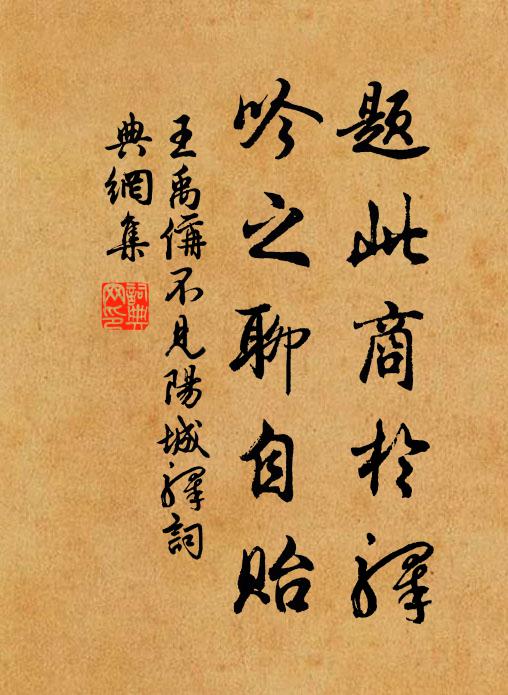 題此商於驛
吟之聊自貽
王禹偁不見陽城驛詞
典網集
詞典網印